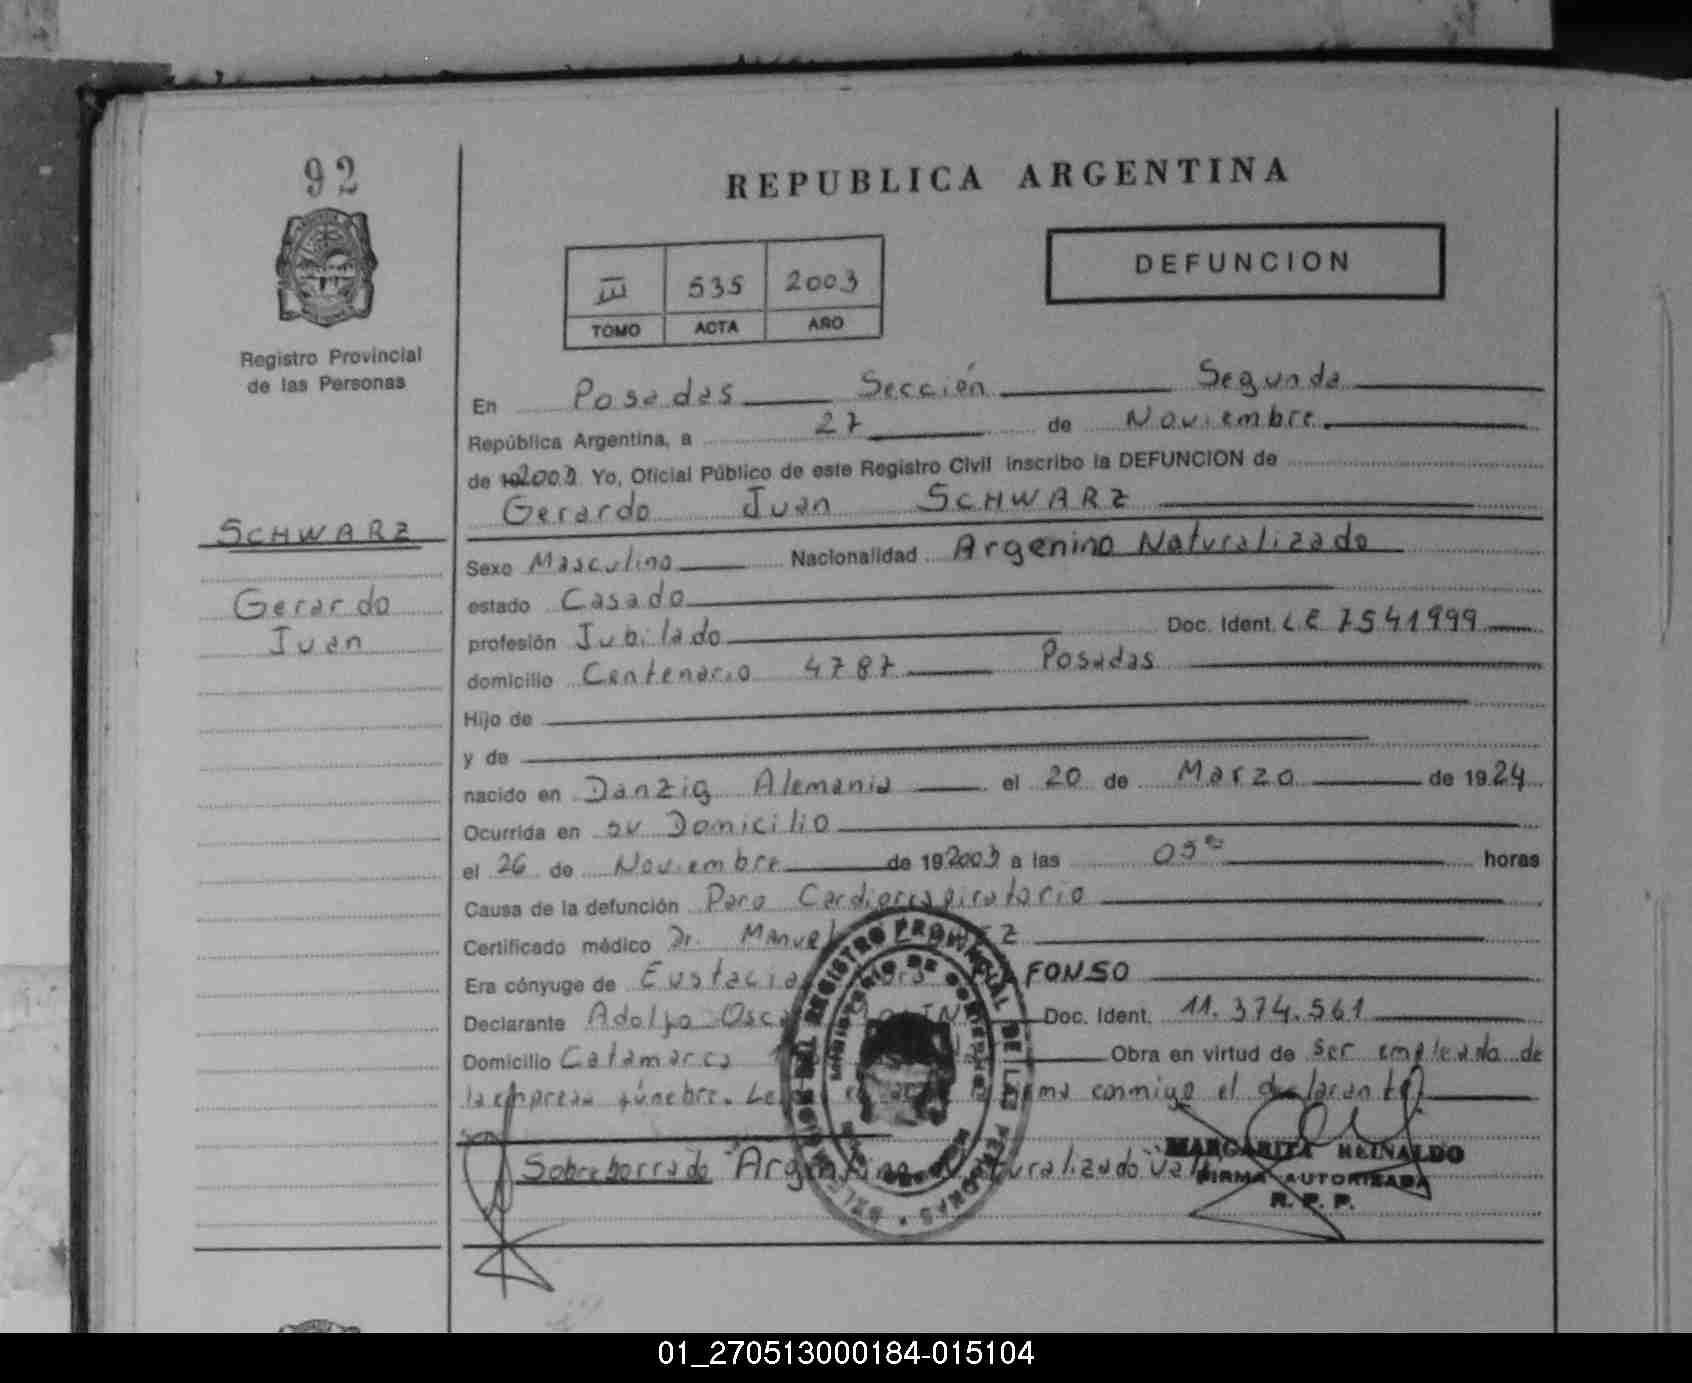 92
REPUBLICA ARGENTINA
III 535 2003
TOMO ACTA AÑO
DEFUNCION
Registro Provincial
de las Personas
En Posadas Sección Segunda
República Argentina, a 27 de Noviembre
de 192003 Yo, Oficial Público de este Registro Civil inscribo la DEFUNCION de
Gerardo Juan SCHWARZ
SCHWARZ
Gerardo
Juan
Sexo Masculino Nacionalidad Argenino Naturalizado
estado Casado
profesión Jubilado Doc. Ident. LE 7541999
domicilio Centenario 4787 Posadas
Hijo de
y de
nacido en Danzig Alemania el 20 de Marzo de 1924
Ocurrida en su Domicilio
el 26 de Noviembre de 192003 a las 05 horas
Causa de la defunción Paro Cardiorrespiratorio
Certificado médico Dr. Manuel
Era cónyuge de Eustacia FONSO
Declarante Adolfo Doc. Ident. 11.374.561
Domicilio Catamarca Obra en virtud de ser empleado de
la empresa fúnebre. firma conmigo el declarante
Sobreborrado "Argentino Naturalizado"
MARGARITA REINALDO
FIRMA AUTORIZADA
R. P. P.
REGISTRO PROVINCIAL DE LAS PERSONAS
MINISTERIO DE GOBIERNO
01_270513000184-015104